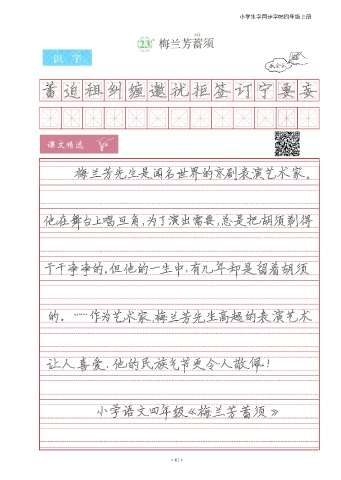 小学生字同步字帖四年级上册
xū
23* 梅兰芳蓄须
识字
蓄迫租纠缠邀扰拒签订宁要妄
课文精选
梅兰芳先生是闻名世界的京剧表演艺术家。
他在舞台上唱旦角,为了演出需要,总是把胡须剃得
干干净净的。但他的一生中,有几年却是留着胡须
的。……作为艺术家,梅兰芳先生高超的表演艺术
让人喜爱,他的民族气节更令人敬佩!
小学语文四年级《梅兰芳蓄须》
·41·